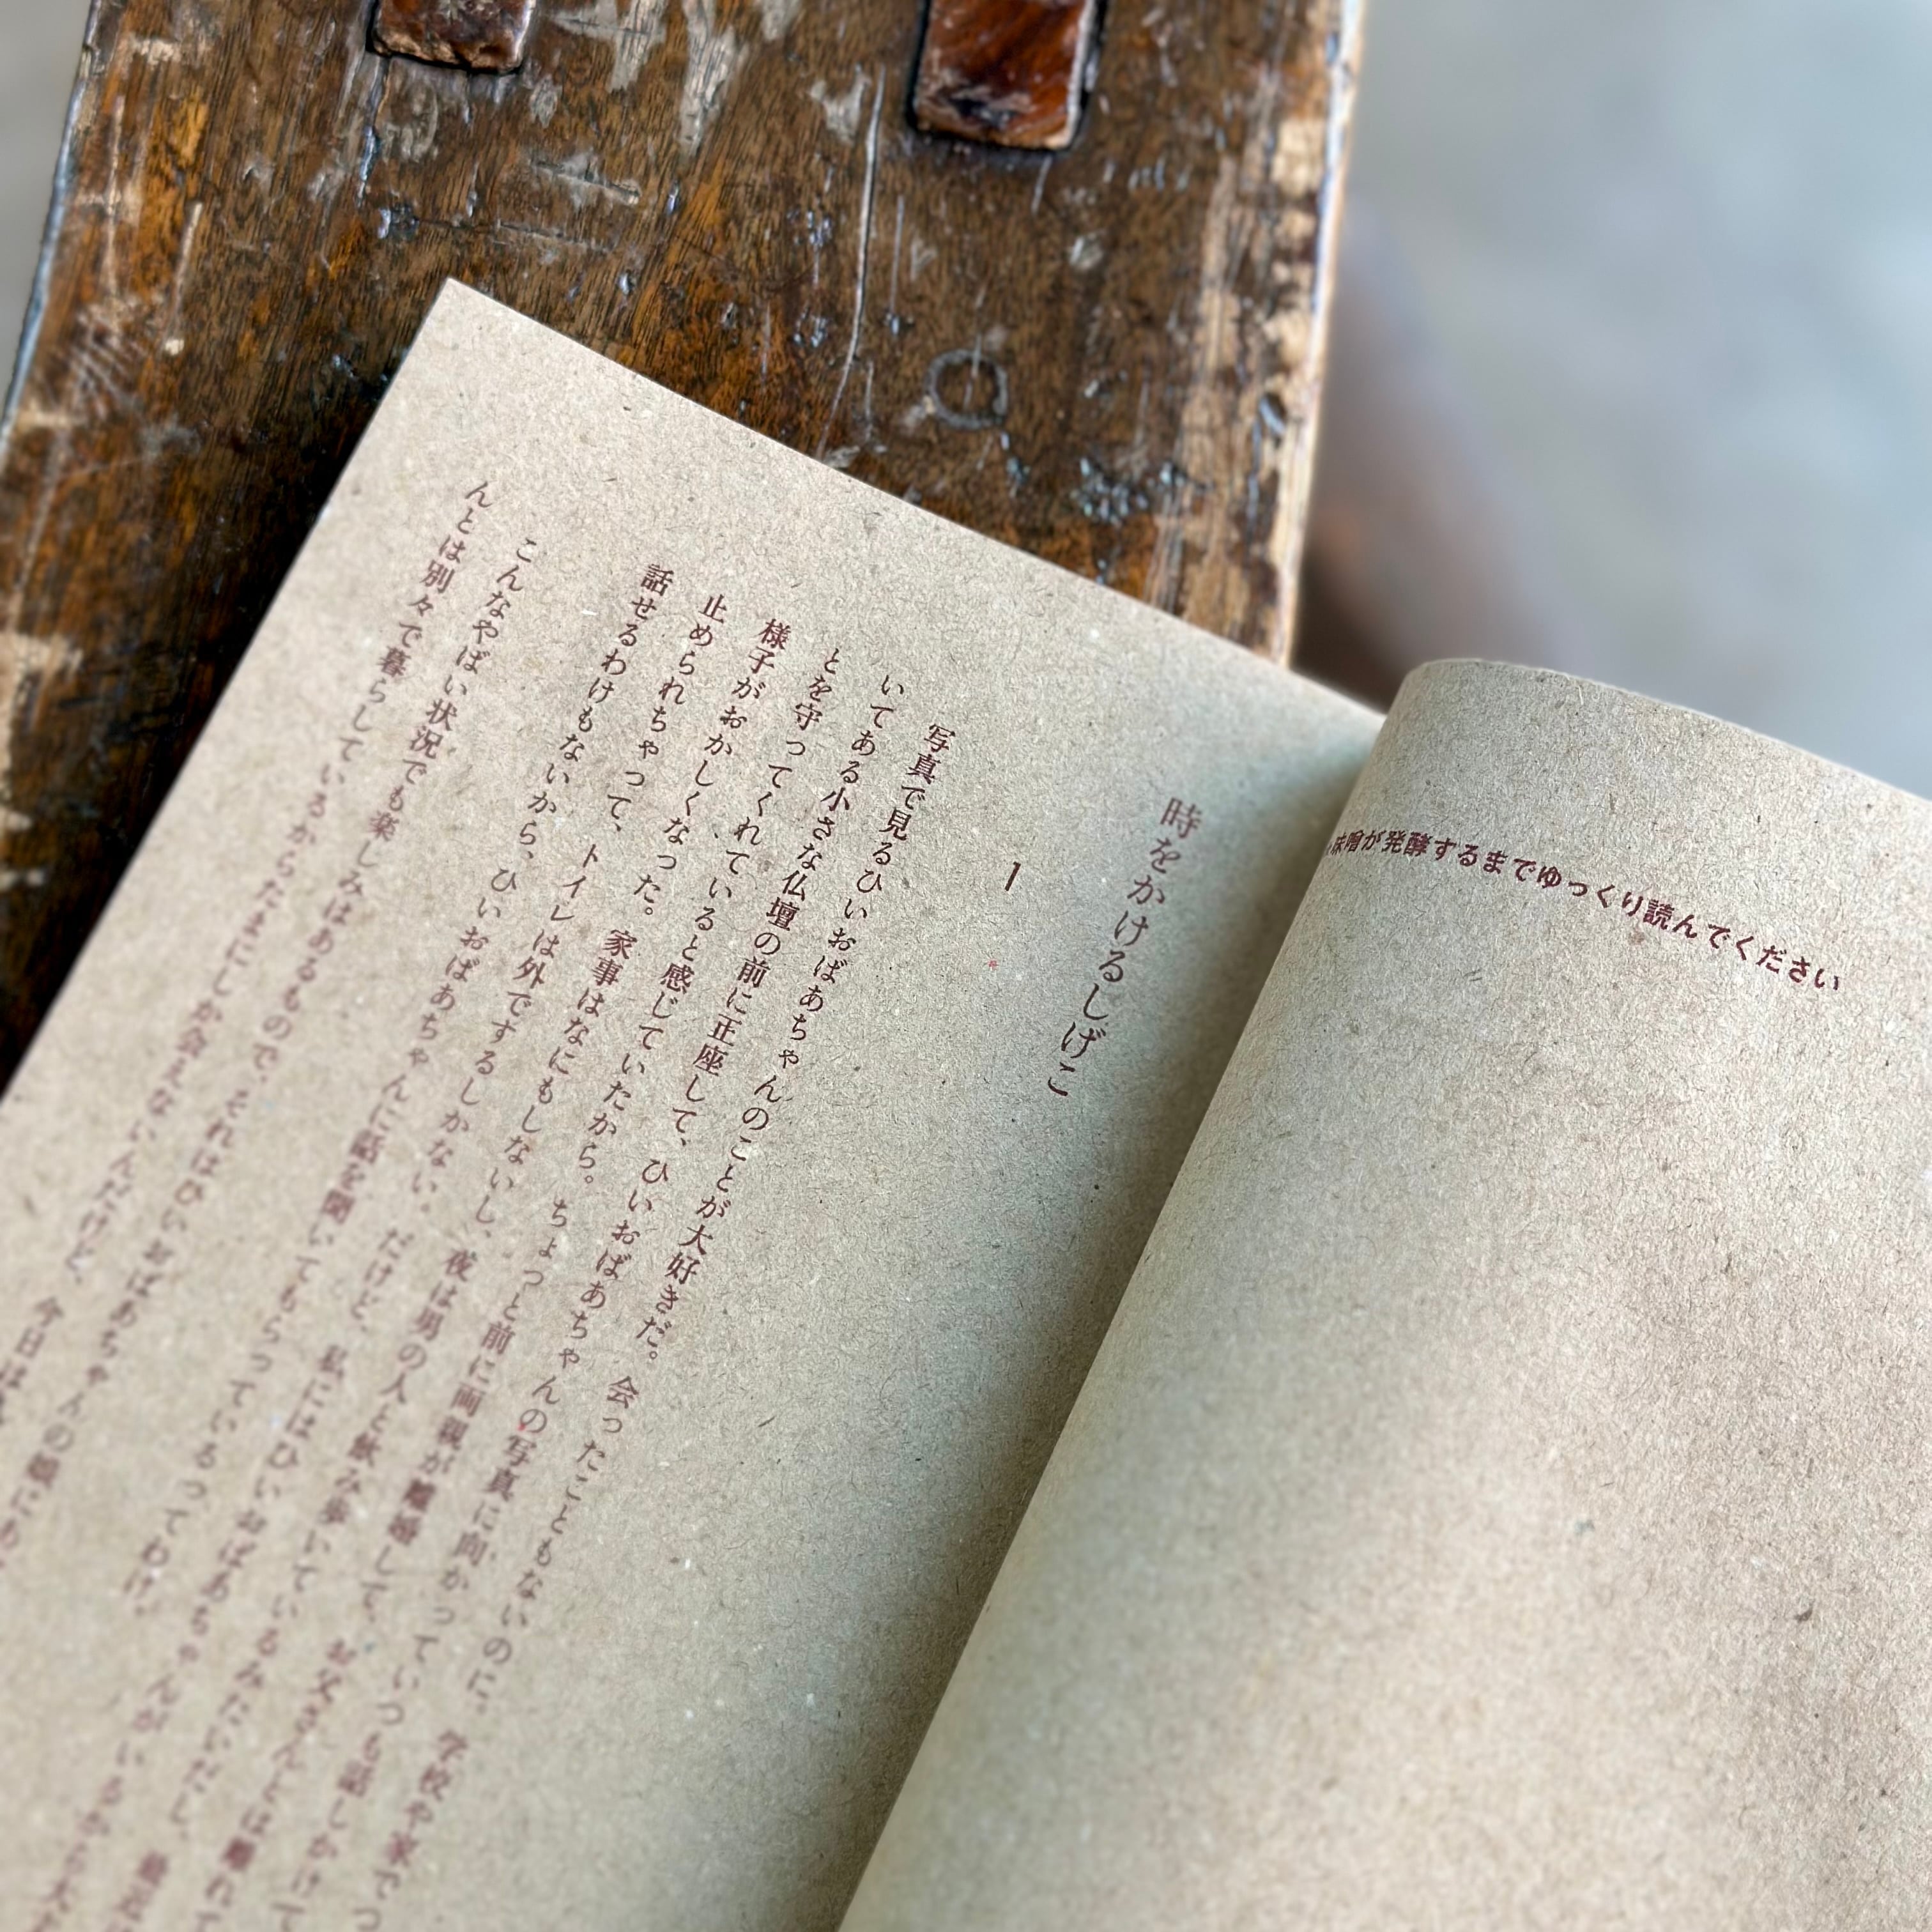 味噌が発酵するまでゆっくり読んでください
時をかけるしげこ
1
写真で見るひいおばあちゃんのことが大好きだ。会ったこともないのに、学校や家でつ
いてある小さな仏壇の前に正座して、ひいおばあちゃんの写真に向かっていつも話しかけて
とを守ってくれていると感じていたから。ちょっと前に両親が離婚して、お父さんとは離れて
様子がおかしくなった。家事はなにもしないし、夜は男の人と飲み歩いているみたいだし、最近
止められちゃって、トイレは外でするしかない。だけど、私にはひいおばあちゃんがいるから大
話せるわけもないから、ひいおばあちゃんに話を聞いてもらっているってわけ。
こんなやばい状況でも楽しみはあるもので、それはひいおばあちゃんの
んとは別々で暮らしているからたまにしか会えないんだけど、今日は